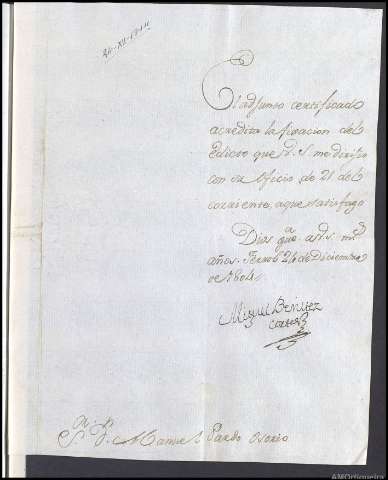 24-XII-1804
El adjunto certificado
acredita la fixacion del
Edicto que V.S. me dirixio
con su Oficio de 21 del
corriente, a que satisfago
Dios gue. a V.S. ms.
años. Ferrol 24 de Diciembre
de 1804.
Miguel Benitez
S. D. Manuel Pardo Osorio
AMOrtigueira